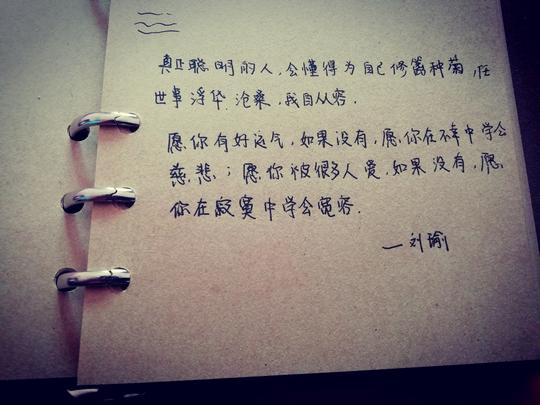 真正聪明的人,会懂得为自己修篱种菊,任
世事浮华沧桑,我自从容.
愿你有好运气,如果没有,愿你在不幸中学会
慈悲;愿你被很多人爱,如果没有,愿
你在寂寞中学会宽容.
—刘瑜